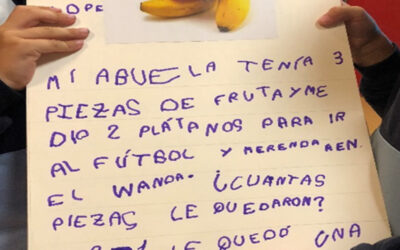 OPE
MI ABUELA TENÍA 3
PIEZAS DE FRUTA Y ME
DIO 2 PLÁTANOS PARA IR
AL FÚTBOL Y MERENDAR EN
EL WANDA. ¿CUANTAS
PIEZAS LE QUEDARON?
LE QUEDÓ UNA